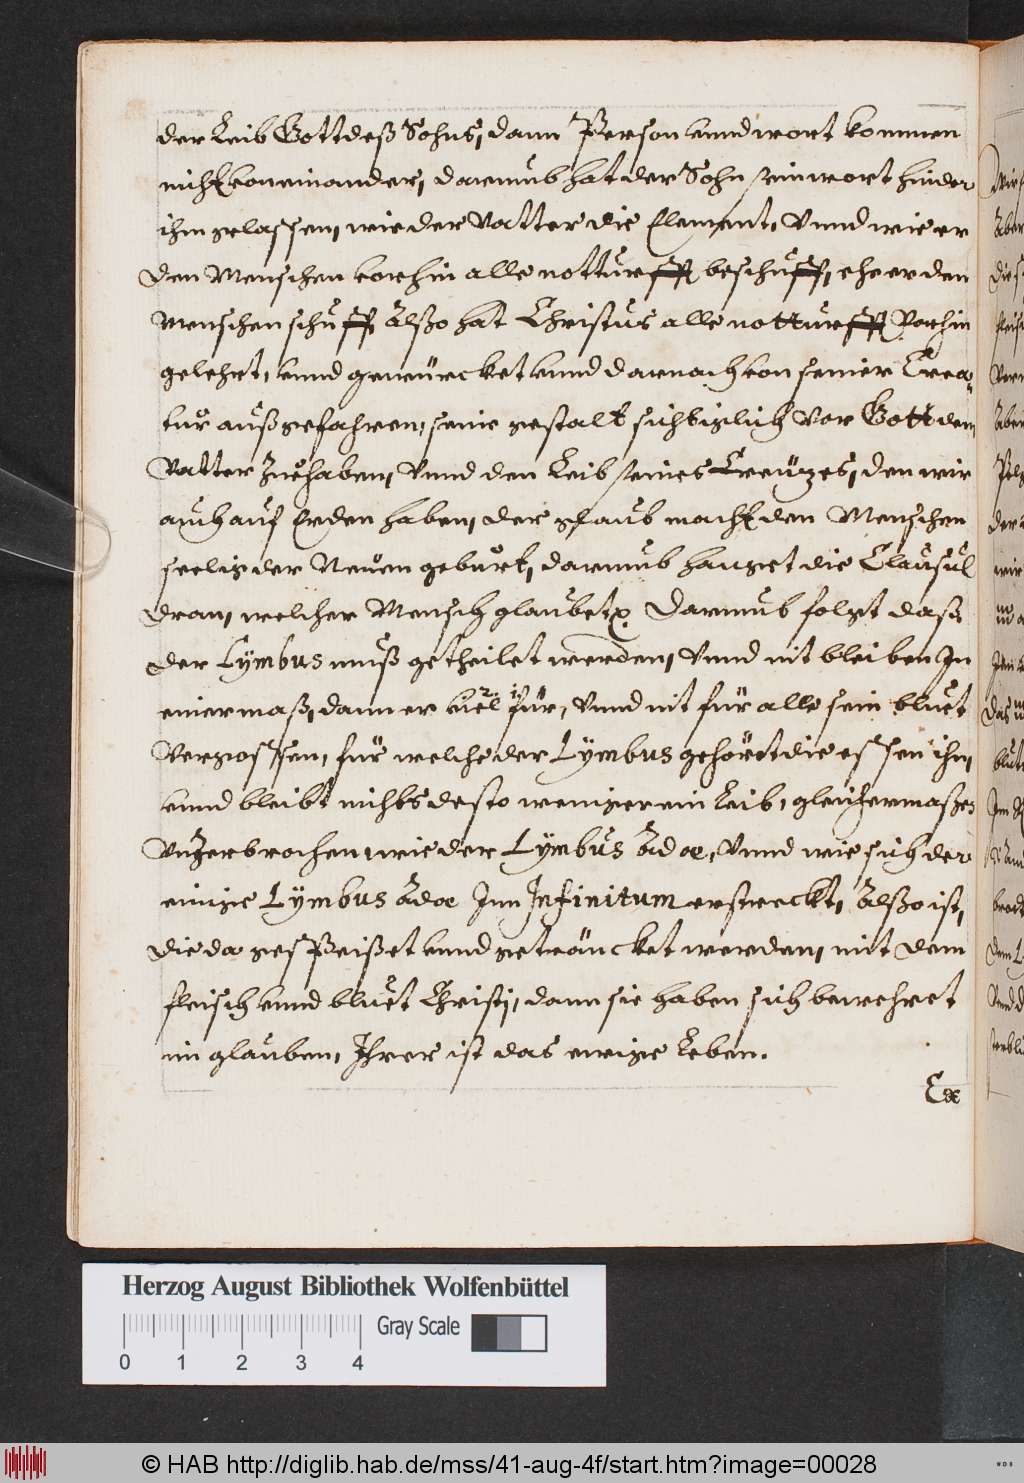 der Leib Gott deß Sohns, dann Person unnd wort kommen
nicht von einander, darumb hat der Sohn sein wort hinder
ihm gelassen, wie der Vatter die Element, Vnnd wie er
den Menschen vorhin alle notturfft beschuff, ehe er den
Menschen schuff Alßo hat Christus alle notturfft Vorhin
gelehrt, unnd gewürcket unnd darnach von seiner Crea-
tur außgefahren, seine gestalt sichtiglich vor Gott dem
Vatter Zuehaben, Vnnd den Leib seines Creützes, den wir
auch auf Erden haben, der glaub macht den Menschen
seelig der Neuen geburt, darumb hanget die Clausul
dran, welcher Mensch glaubet Darumb folgt dass
der Lymbus muß getheilet werden, Vnnd nit bleiben In
einer maß, dann er viel 2. für 1., Vnnd nit für alle sein bluet
Vergossen, für welche der Lymbus gehört die essen ihn,
unnd bleibt nichts desto weniger ein Leib, gleichermaßen
Vnzerbrochen wie der Lymbus Adæ, Vnnd wie sich der
einige Lymbus Adæ Inn Infinitum erstreckt, Alßo ist,
die da gespeißet unnd getäncket werden, mit dem
fleisch unnd bluet Christi, dann sie haben sich bewehret
im glauben, Ihrer ist das ewige Leben.
Ex
Herzog August Bibliothek Wolfenbüttel
Gray Scale
0 1 2 3 4
© HAB http://diglib.hab.de/mss/41-aug-4f/start.htm?image=00028